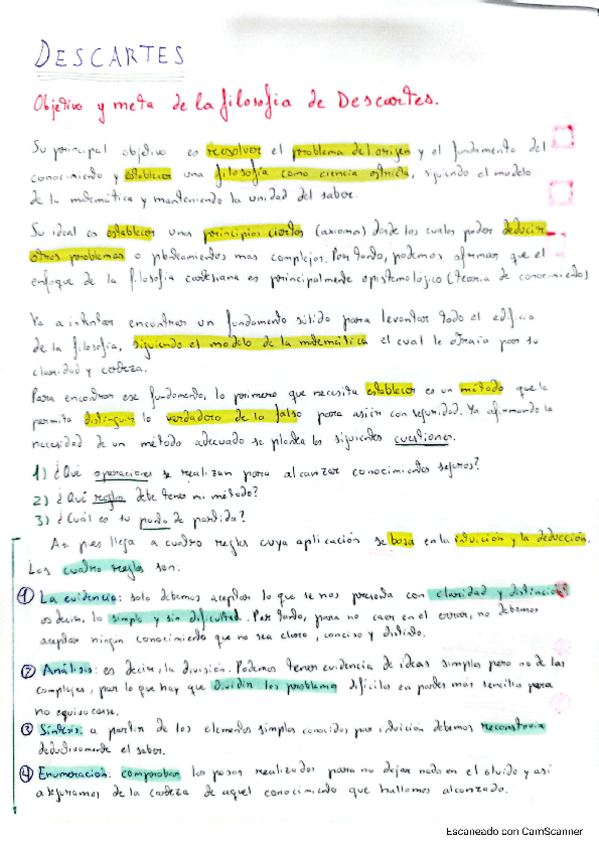 DESCARTES
Objetivo y meta de la filosofía de Descartes.
Su principal objetivo es resolver el problema del origen y el fundamento del
conocimiento y establecer una filosofía como ciencia estricta, siguiendo el modelo
de la matemática y manteniendo la unidad del saber.
Su ideal es establecer unos principios ciertos (axiomas) desde los cuales poder deducir
otros problemas o planteamientos mas complejos. Por tanto, podemos afirmar que el
enfoque de la filosofía cartesiana es principalmente epistemológico (teoría de conocimiento)
Va a intentar encontrar un fundamento sólido para levantar todo el edificio
de la filosofía, siguiendo el modelo de la matemática el cual le atraía por su
claridad y certeza.
Para encontrar ese fundamento, lo primero que necesita establecer es un método que le
permita distinguir lo verdadero de lo falso para así ir con seguridad. Ya afirmando la
necesidad de un método adecuado se plantea las siguientes cuestiones.
1) ¿Qué operaciones se realizan para alcanzar conocimientos seguros?
2) ¿Qué reglas debe tener mi método?
3) ¿Cuál es su punto de partida?
Así pues llega a cuatro reglas cuya aplicación se basa en la intuición y la deducción.
Las cuatro reglas son:
1 La evidencia: solo debemos aceptar lo que se nos presenta con claridad y distinción
es decir, lo simple y sin dificultad. Por tanto, para no caer en el error, no debemos
aceptar ningún conocimiento que no sea claro, conciso y distinto.
2 Análisis: es decir, la división. Podemos tener evidencia de ideas simples pero no de las
complejas, por lo que hay que dividir los problemas difíciles en partes más sencillas para
no equivocarse.
3 Síntesis: a partir de los elementos simples conocidos por intuición debemos reconstruir
deductivamente el saber.
4 Enumeración: comprobar los pasos realizados para no dejar nada en el olvido y así
asegurarnos de la certeza de aquel conocimiento que hallamos alcanzado.
Escaneado con CamScanner